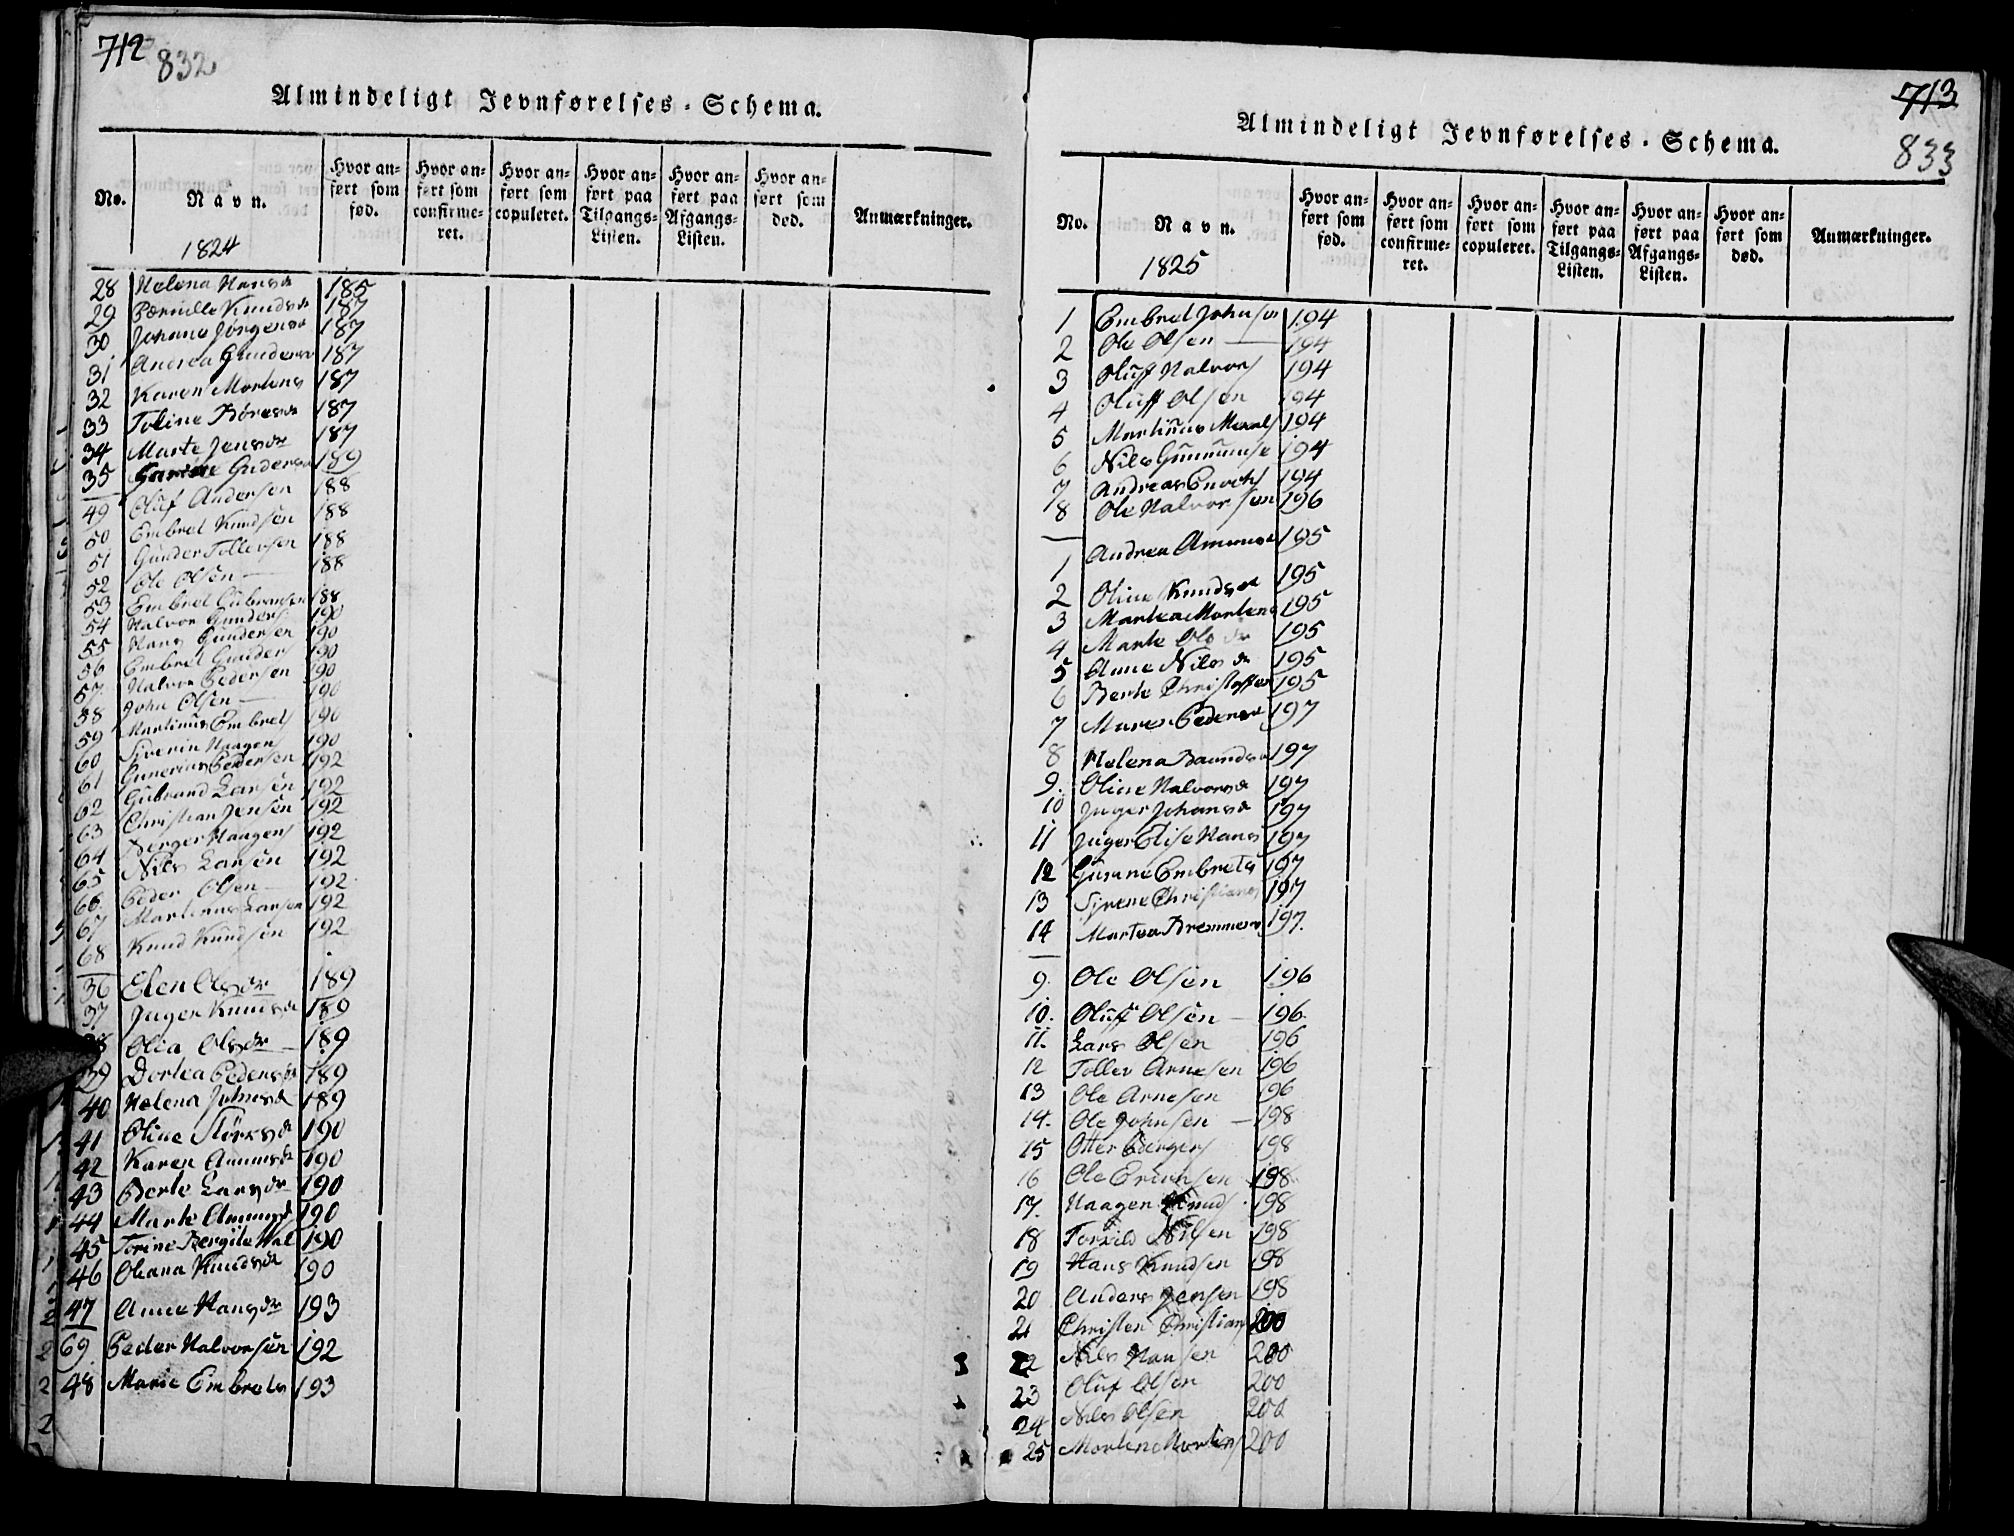 712 832
Almindeligt Jevnførelses-Schema.
No.
Navn.
1824
Hvor anført som fød.
Hvor anført som confirmeret.
Hvor anført som copuleret.
Hvor anført paa Tilgangs-Listen.
Hvor anført paa Afgangs-Listen.
Hvor anført som død.
Anmærkninger.
28 Helena Hansdr 185
29 Pernille Knudsdr 187
30 Johane Jörgensdr 187
31 Andrea Gundersdr 187
32 Karen Mortens 187
33 Toline Börresdr 187
34 Marte Jensdr 187
35 Gudersdr 189
49 Oluf Andersen 188
50 Embret Knudsen 188
51 Gunder Tollevsen 188
52 Ole Olsen 188
53 Embret Gubransen 188
54 Halvor Gunders 190
55 Hans Gundersen 190
56 Embret Gunders 190
57 Halvor Pedersen 190
58 John Olsen 190
59 Martinus Embrets 190
60 Siverin Haagens 190
61 Gunerius Pedersen 192
62 Gubrand Larsen 192
63 Christian Jensen 192
64 Berger Haagens 192
65 Nils Larsen 192
66 Peder Olsen 192
67 Martinus Larsen 192
68 Knud Knudsen 192
36 Elen Olsdr 189
37 Inger Knudsdr 189
38 Olea Olsdr 189
39 Dortea Pedersdr 189
40 Helena Johnsdr 189
41 Oline Störksdr 190
42 Karen Amunsdr 190
43 Berte Larsdr 190
44 Marte Amunsdr 190
45 Torine Bergite Hal 190
46 Oleana Knudsdr 190
47 Anne Hansdr 193
69 Peder Halvorsen 192
48 Marie Embrets 193
713
833
Almindeligt Jevnførelses-Schema.
No.
Navn.
1825
Hvor anført som fød.
Hvor anført som confirmeret.
Hvor anført som copuleret.
Hvor anført paa Tilgangs-Listen.
Hvor anført paa Afgangs-Listen.
Hvor anført som død.
Anmærkninger.
1 Embret Johnsen 194
2 Ole Olsen 194
3 Oluff Halvors 194
4 Oluff Olsen 194
5 Martinus 194
6 Nils Gunnunse 194
7 Andreas Enochs 194
8 Ole Halvorsen 196
1 Andrea Amunsdr 195
2 Oline Knudsdr 195
3 Martea Mortens 195
4 Marte Olsdr 195
5 Anne Nilsdr 195
6 Berte Christoffer 195
7 Maren Pedersdr 197
8 Helena 197
9. Oline Halvorsdr 197
10 Inger Johansdr 197
11 Inger Elise Hans 197
12 Gunne Embrets 197
13 Sirene Christians 197
14 Martea Bremmers 197.
9. Ole Olsen 196
10. Oluf Olsen 196
11. Lars Olsen 196
12 Tollev Arnesen 196
13 Ole Arnesen 196
14. Ole Johnsen 198
15 Otter Bergers 198
16 Ole Ericksen 198
17. Haagen Knuds 198
18 Torkild Nilsen 198
19 Hans Knudsen 198
20 Anders Jensen 198
21 Christen Christians 200
22 Nils Hansen 200
23 Oluf Olsen 200
24 Nils Olsen 200
25 Morten Mortens 200